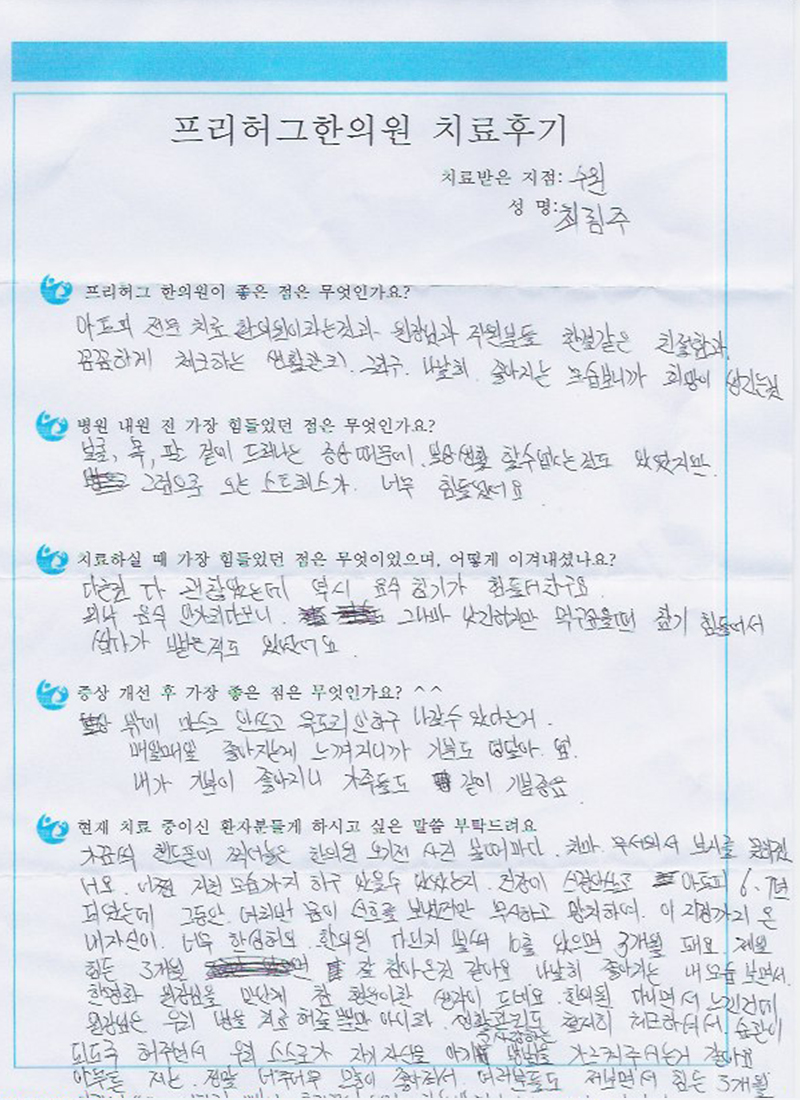 프리허그한의원 치료후기
치료받은 지점: 수원
성 명: 최림주
프리허그 한의원이 좋은 점은 무엇인가요?
아토피 전문 치료 한의원이라는것과 원장님과 직원분들 한결같은 친절함과
꼼꼼하게 체크하는 생활관리. 그리구. 나날히. 좋아지는 모습보니까 희망이 생기는것
병원 내원 전 가장 힘들었던 점은 무엇인가요?
얼굴, 목, 팔 겉에 드러나는 증상때문에. 일상생활 할수없는것도 있었지만.
그럼으로 오는 스트레스가. 너무 힘들었어요
치료하실 때 가장 힘들었던 점은 무엇이었으며, 어떻게 이겨내셨나요?
다른건 다 괜찮았는데 역시 음식 참기가 힘들더라구요.
음식 그나마 먹구싶을때 참기 힘들어서
뱉은적도 있었어요.
증상 개선 후 가장 좋은 점은 무엇인가요? ^^
밖에 마스크 안쓰고 목도리 안하구 나갈수 있다는거.
매일매일 좋아지는게 느껴지니까 기분도 덩달아. 업.
내가 기분이 좋아지니 가족들도 같이 기분좋음
현재 치료 중이신 환자분들게 하시고 싶은 말씀 부탁드려요
가끔씩 핸드폰에 찍어놓은 한의원 오기전 사진 볼때마다. 차마. 무서워서 보지를 못하겠
어요. 어쩜 저런 모습까지 하구 있을수 있었는지. 건강에 신경안쓰고 아토피 6.7년
되었는데 그동안. 여러번 몸이 신호를 보냈건만 무시하고 방치하며. 이 지경까지 온
내자신이. 너무 한심해요. 한의원 다닌지 벌써 10월 있으면 3개월 돼요. 제일
힘든 3개월 잘 참아온것 같아요 나날히 좋아지는 내모습 보면서.
원장님을 만난게 참 행운이란 생각이 드네요. 한의원 다니면서 느낀건데
원장님은 우리 병을 치료 해줄뿐만 아니라. 생활관리도 철저히 체크하셔서. 습관이
되도록 해주면서 우리 스스로가 자기 자신을 아끼 사랑하는 방법을 가르쳐주시는거 같아요
아무튼 저는. 정말 너무너무 많이 좋아져서. 여러분들도 저보면서 힘든 3개월